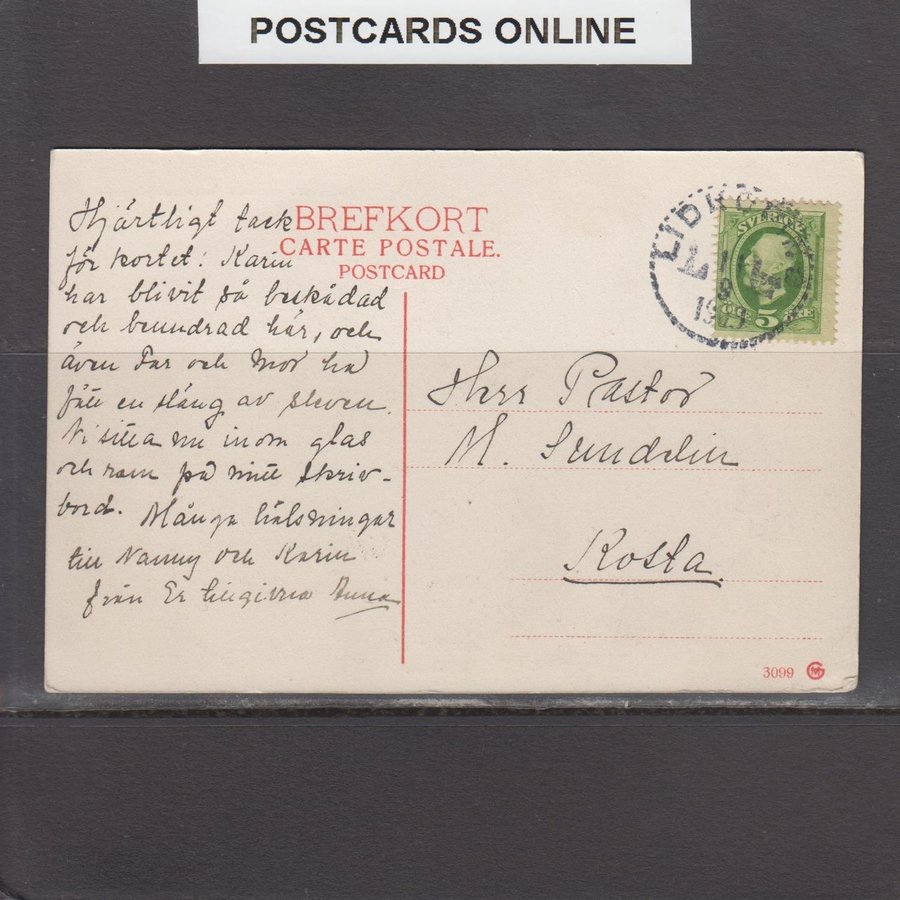 POSTCARDS ONLINE
BREFKORT
CARTE POSTALE.
POSTCARD
Hjärtligt tack
för kortet! Karin
har blivit så beskådad
och beundrad här, och
även Far och Mor ha
fått en släng av sleven.
Ni sitta nu inom glas
och ram på mitt skriv-
bord. Många hälsningar
till Nanny och Karin
från Er tillgivna Anna
SVERIGE
5
Herr Pastor
M. Sundelin
Kosta.
3099